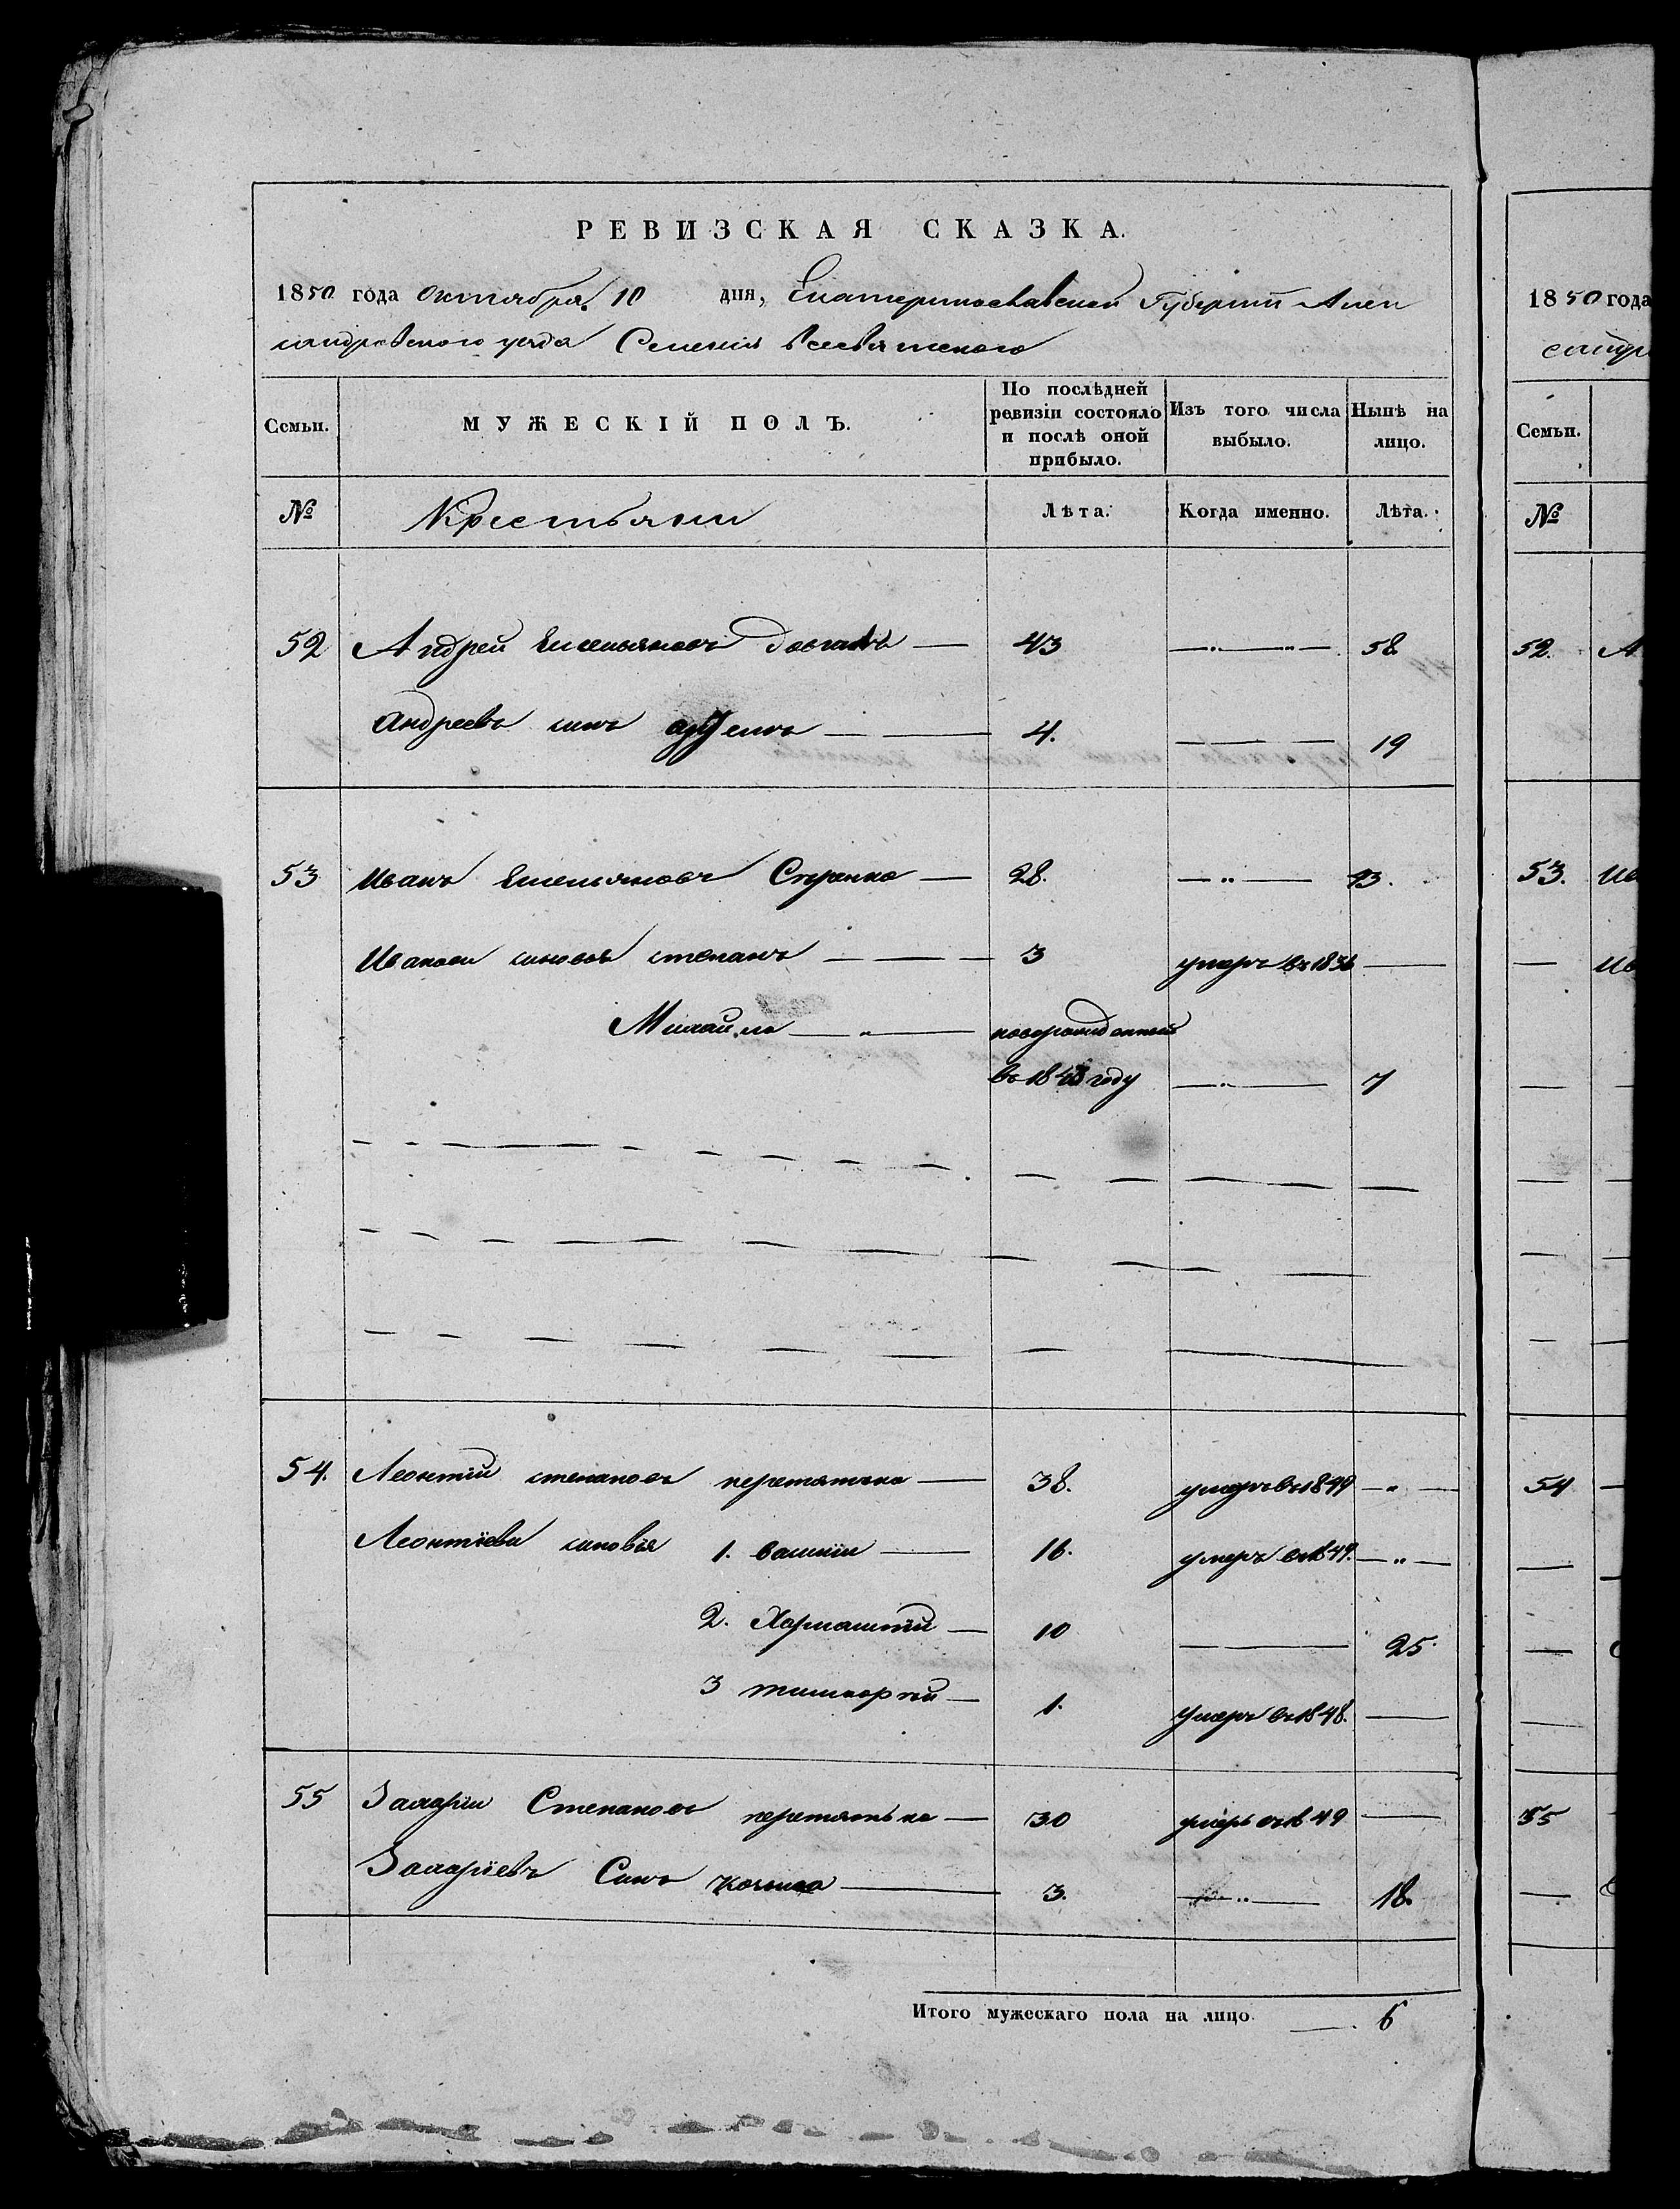 РЕВИЗСКАЯ СКАЗКА.
1850 года Октября 10 дня, Екатеринославской Губернии Алек
сандровского уезда Селения Всесвятского
Семьи. МУЖЕСКІЙ ПОЛЪ. По послѣдней ревизіи состояло и послѣ оной прибыло. Изъ того числа выбыло. Нынѣ на лицо.
№ Крестьяни Лѣта. Когда именно. Лѣта.
52 Андрей Емельяновъ 43 58
Андреевъ синъ 4. 19
53 Иванъ Емельяновъ 28. 43.
Иванови синовья степанъ 3 умеръ въ 1836
Михайло новорожденный
въ 1843 году 7
54. Леонтій степановъ перетятько 38. умеръ въ 1849
Леонтіеви синовья 1. 16. умеръ въ 1849.
2. 10 25.
3 1. умеръ въ 1848.
55 Захарій Степановъ перетятько 30 умеръ въ 1849
Захаріевъ Синъ 3. 18.
Итого мужескаго пола на лицо 6
1850 года
сандр
Семьи.
№
52. А
53. Ив
Ив
54
55